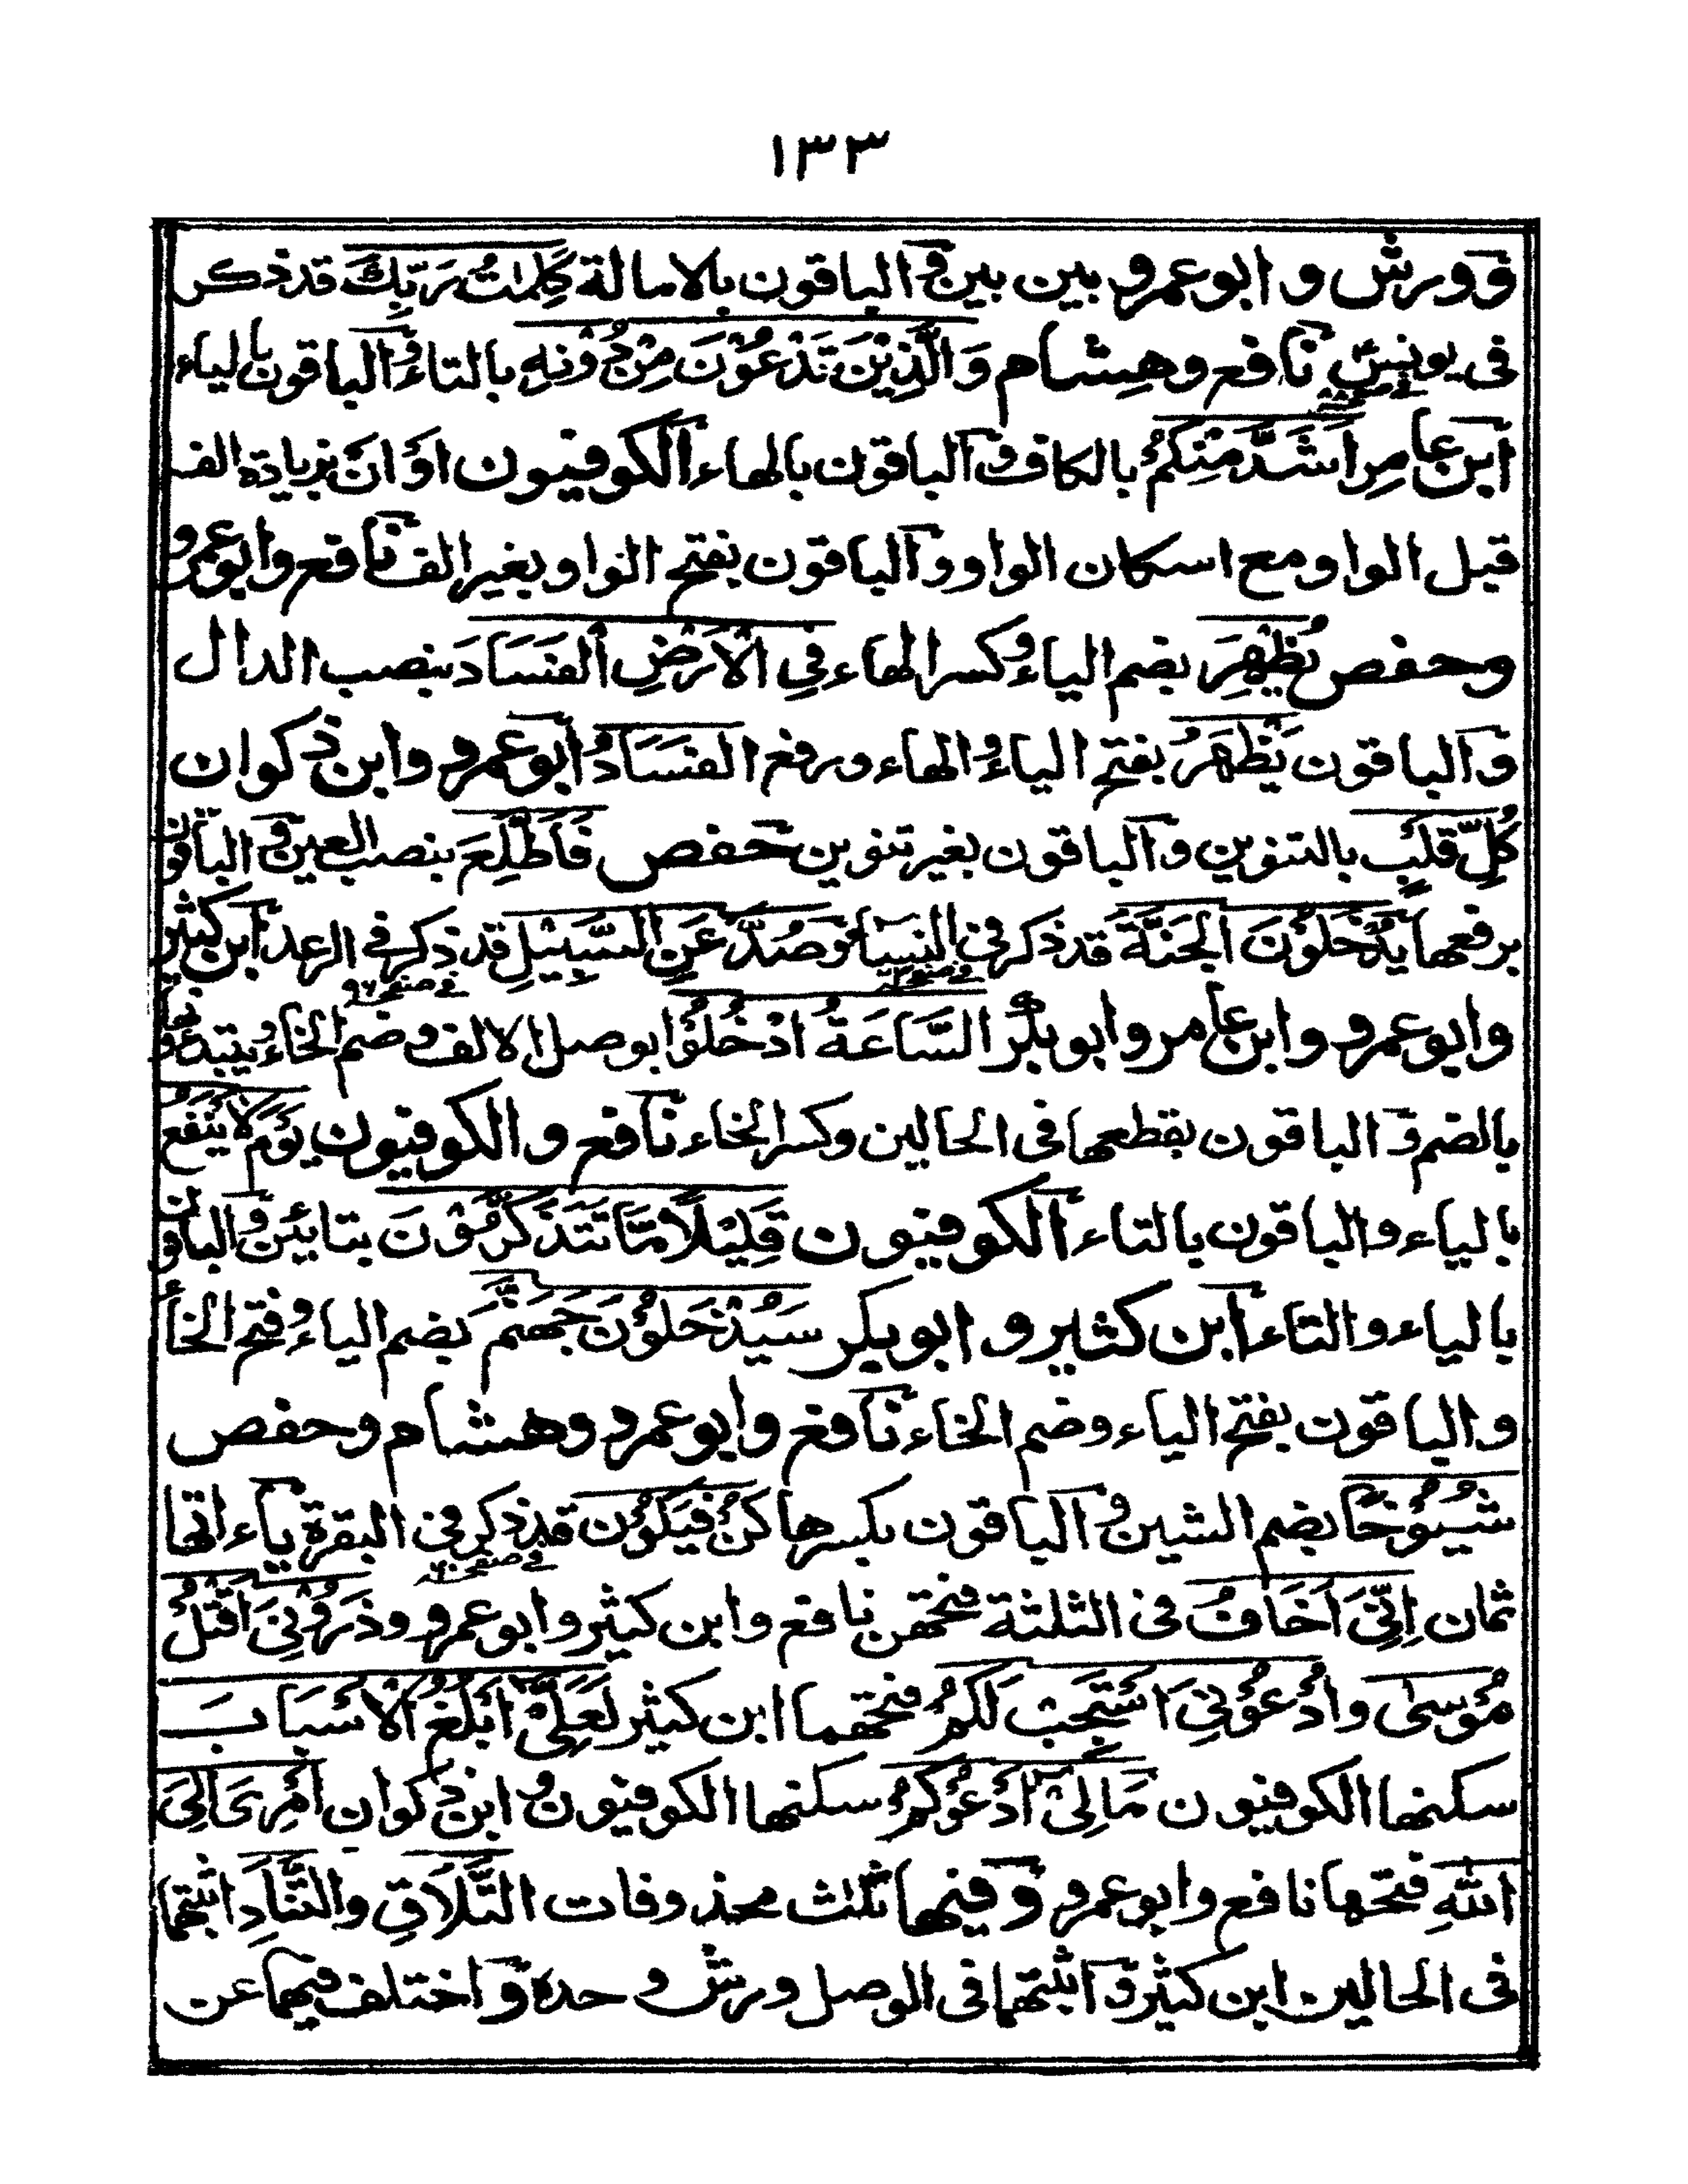 ١٣٣
وورش وابوعمرو بين بين والباقون بالامالة كَلِمٰتُ رَبِّكَ قد ذكر
فى يونس نافع وهشام وَالَّذِيْنَ تَدْعُوْنَ مِنْ دُوْنِهٖ بالتاء والباقون بالياء
ابن عامر اَشَدَّ مِنْكُمْ بالكاف والباقون بالهاء الكوفيون اَوْ اَنْ بزيادة الف
قبل الواو مع اسكان الواو والباقون بفتح الواو بغير الف نافع وابوعمرو
وحفص يُظْهِرَ بضم الياء وكسر الهاء فِي الْاَرْضِ الْفَسَادَ بنصب الدال
والباقون يَظْهَرُ بفتح الياء والهاء ورفع الفَسَادُ ابوعمرو وابن ذكوان
كُلِّ قَلْبٍ بالتنوين والباقون بغير تنوين حفص فَاَطَّلِعَ بنصب العين والباقون
برفعها يَدْخُلُوْنَ الْجَنَّةَ قد ذكر فى النساء وَصُدَّ عَنِ السَّبِيْلِ قد ذكر فى الرعد ابن كثير
وابوعمرو وابن عامر وابوبكر السَّاعَةُ ادْخُلُوْا بوصل الالف وضم الخاء ويبتدءونها
بالضم والباقون بقطعها فى الحالين وكسر الخاء نافع والكوفيون يَوْمَ لَا يَنْفَعُ
بالياء والباقون بالتاء الكوفيون قَلِيْلًا مَّا تَتَذَكَّرُوْنَ بتايين والباقون
بالياء والتاء ابن كثير وابوبكر سَيُدْخَلُوْنَ جَهَنَّمَ بضم الياء وفتح الخاء
والباقون بفتح الياء وضم الخاء نافع وابوعمرو وهشام وحفص
شُيُوْخًا بضم الشين والباقون بكسرها كُنْ فَيَكُوْن قد ذكر فى البقرة ياءاتها
ثمان اِنِّيَ اَخَافُ فى الثلثة فتحهن نافع وابن كثير وابوعمرو وذَرُوْنِيَ اَقْتُلْ
مُوْسٰى وادْعُوْنِيَ اَسْتَجِبْ لَكُمْ فتحهما ابن كثير لَعَلِّيْ اَبْلُغُ الْاَسْبَابَ
سكنها الكوفيون مَالِيْ اَدْعُوْكُمْ سكنها الكوفيون وابن ذكوان اَمْرِيَ اِلَى
اللّٰهِ فتحها نافع وابوعمرو وفيها ثلث محذوفات التَّلَاقِ والتَّنَادِ اثبتهما
فى الحالين ابن كثير واثبتهما فى الوصل ورش وحده واختلف فيهما عن